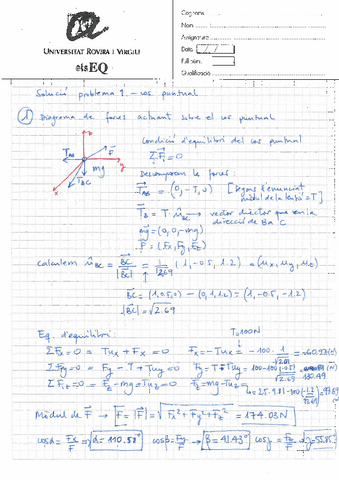 Cognoms
Nom
Assignatura
Data
Full núm.
Qualificació
UNIVERSITAT ROVIRA I VIRGILI
etsEQ
Solució problema 1.- cos puntual
① Diagrama de forces actuant sobre el cos puntual
Condició d'equilibri del cos puntual
ΣF⃗i = 0
z
F⃗
T⃗AB
y
mg
T⃗BC
x
Descomponem les forces:
T⃗AB = (0, -T, 0) [Segons l'enunciat mòdul de la tensió = T]
T⃗B = T · u⃗BC → vector director que va en la direcció de B a C
mg⃗ = (0, 0, -mg)
F⃗ = (Fx, Fy, Fz)
calculem u⃗BC = BC⃗ / |BC⃗| = 1/√2.69 (1, -0.5, 1.2) = (ux, uy, uz)
BC⃗ = (1, 0.5, 0) - (0, 1, 1.2) = (1, -0.5, -1.2)
|BC⃗| = √2.69
Eq. d'equilibri:
T=100N
ΣFx = 0 = Tux + Fx = 0 Fx = -Tux = -100 · 1/√2.69 = -60.97 (N)
ΣFy = 0 = Fy - T + Tuy = 0 Fy = T - Tuy = 100 - 100 (-0.5)/√2.69 = 130.49 (N)
ΣFz = 0 = Fz - mg + Tuz = 0 Fz = mg - Tuz
Mòdul de F⃗ → F = |F⃗| = √Fx² + Fy² + Fz² = 174.03 N
cosα = Fx/F → α = 110.51° cosβ = Fy/F → β = 41.43° cosγ = Fz/F → γ = 55.85°